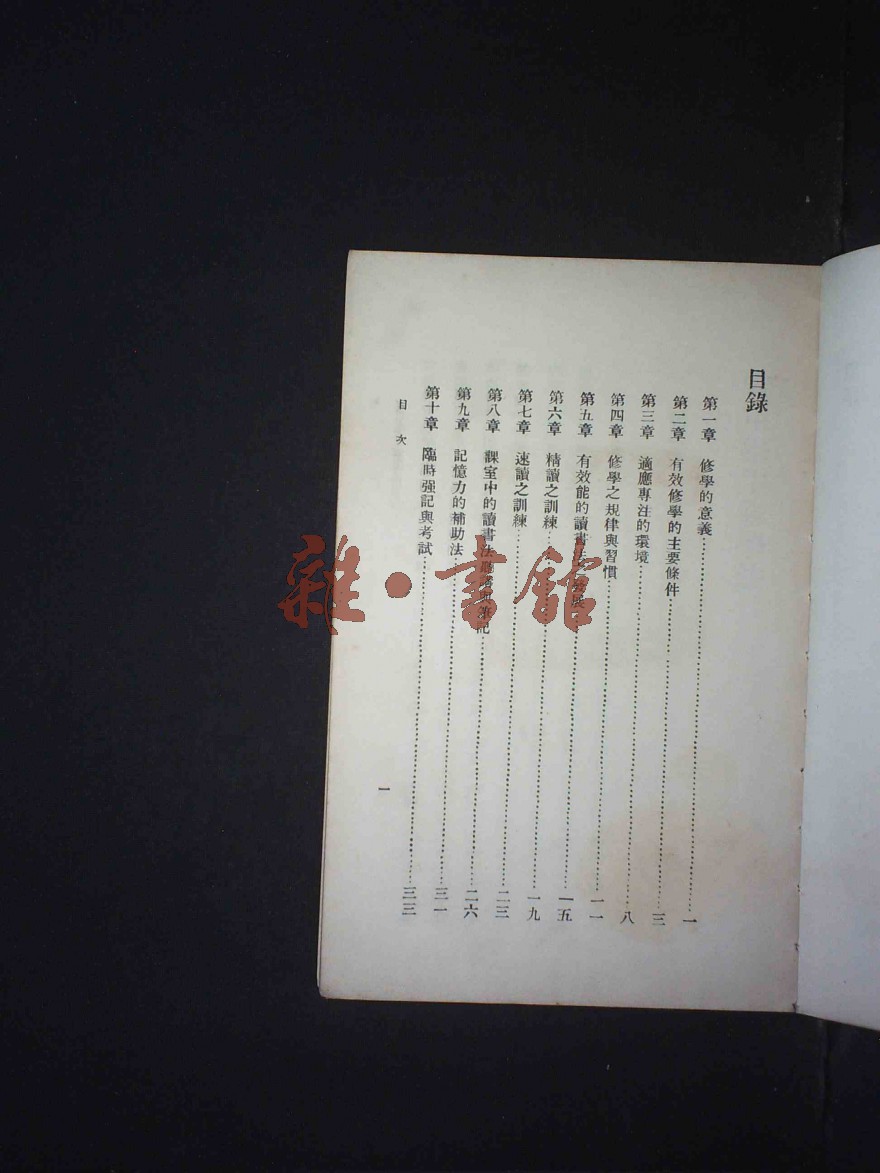 目錄
第一章 修學的意義……一
第二章 有效修學的主要條件……三
第三章 適應專注的環境……八
第四章 修學之規律與習慣……一一
第五章 有效能的讀書法 發展……一五
第六章 精讀之訓練……一九
第七章 速讀之訓練……二三
第八章 課室中的讀書法 筆記……二六
第九章 記憶力的補助法……三一
第十章 臨時强記與考試……三三
目次
一
雜·書館